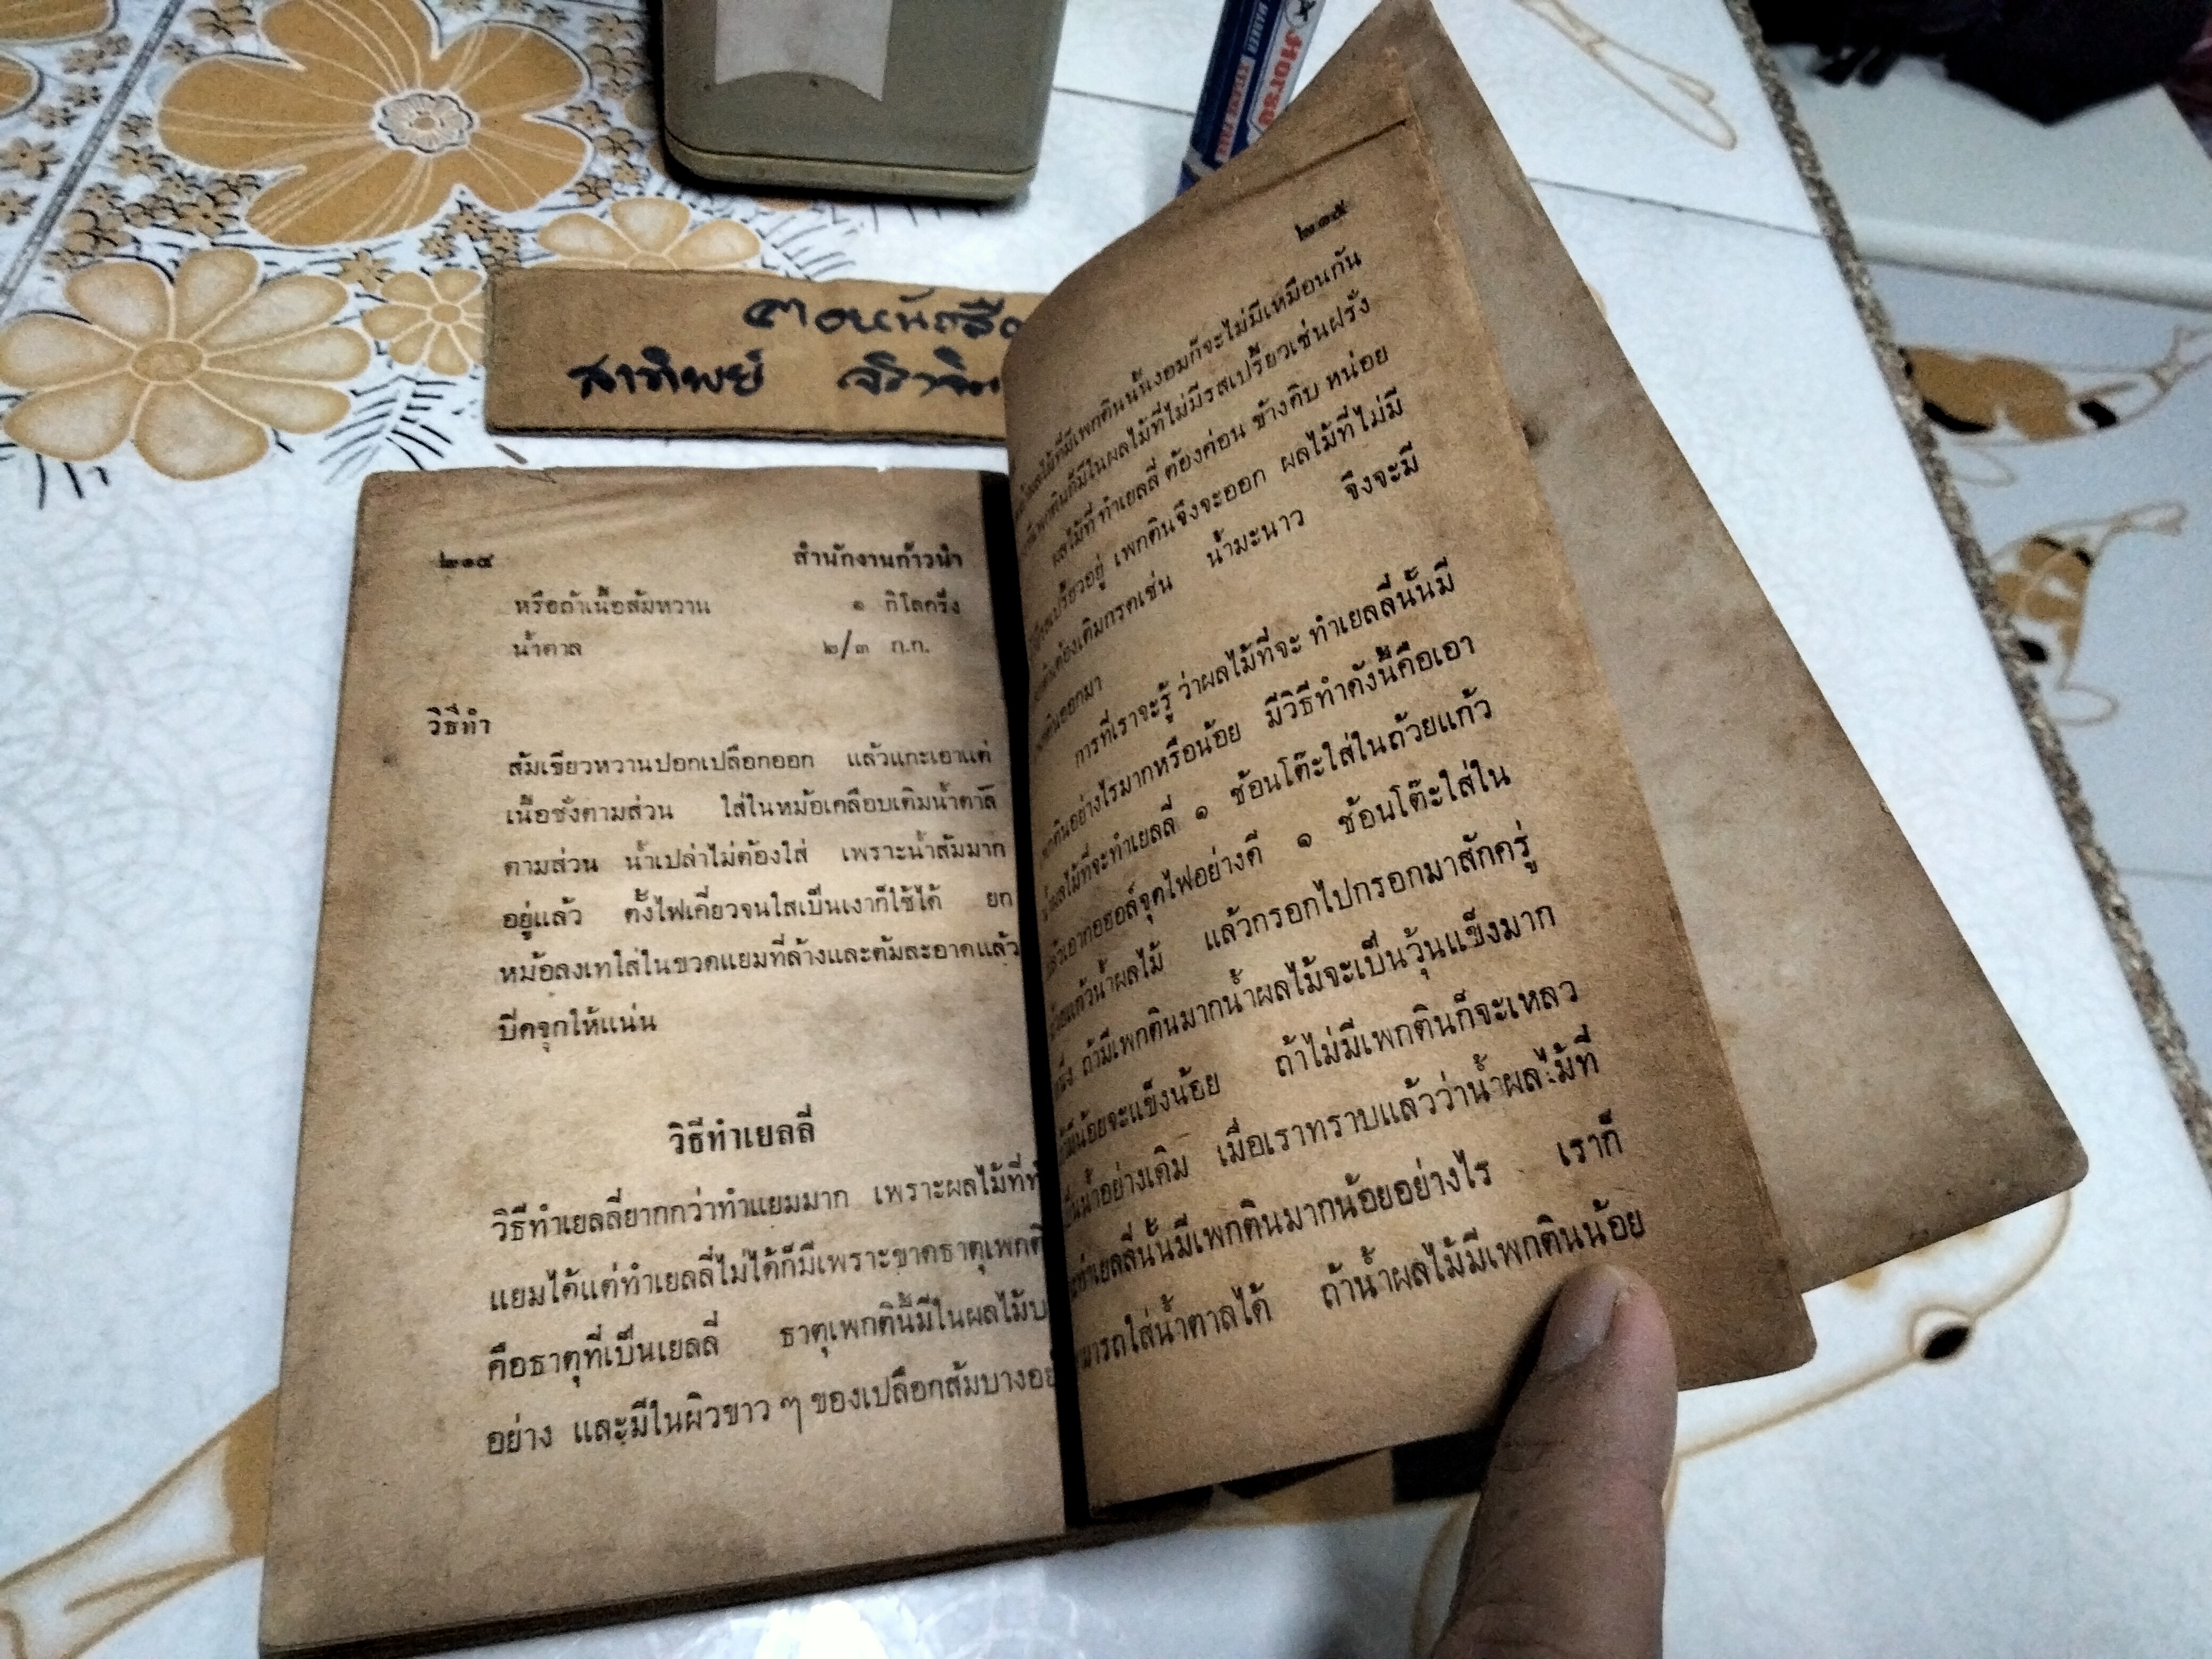 Horse
MARKER
ตอหนังสือ
สาทิพย์
๒๑๔ สำนักงานก้าวน่า
หรือถ้าเนื้อส้มหวาน ๑ กิโลครึ่ง
น้ำตาล ๒/๓ ก.ก.
วิธีทำ
ส้มเขียวหวานปอกเปลือกออก แล้วแกะเอาแต่
เนื้อชั่งตามส่วน ใส่ในหม้อเคลือบเติมน้ำตาล
ตามส่วน น้ำเปล่าไม่ต้องใส่ เพราะน้ำส้มมาก
อยู่แล้ว ตั้งไฟเคี่ยวจนใสเป็นเงาก็ใช้ได้ ยก
หม้อลงเทใส่ในขวดแยมที่ล้างและต้มสะอาดแล้ว
ปีดจุกให้แน่น
วิธีทำเยลลี่
วิธีทำเยลลี่ยากกว่าทำแยมมาก เพราะผลไม้ที่ทำ
แยมได้แต่ทำเยลลี่ไม่ได้ก็มีเพราะขาดธาตุเพกติ
คือธาตุที่เป็นเยลลี่ ธาตุเพกตินี้มีในผลไม้บ
อย่าง และมีในผิวขาว ๆ ของเปลือกส้มบางอย
๒๑๕
ผลไม้ที่มีเพกตินนั้นงอมก็จะไม่มีเหมือนกัน
เพกตินก็มีในผลไม้ที่ไม่มีรสเปรี้ยวเช่นฝรั่ง
ผลไม้ที่ ทำเยลลี่ ต้องค่อน ข้างดิบ หน่อย
เปรี้ยวอยู่ เพกตินจึงจะออก ผลไม้ที่ไม่มี
ต้องเติมกรดเช่น น้ำมะนาว จึงจะมี
ออกมา
การที่เราจะรู้ ว่าผลไม้ที่จะ ทำเยลลี่นั้นมี
อย่างไรมากหรือน้อย มีวิธีทำดังนี้คือเอา
ผลไม้ที่จะทำเยลลี่ ๑ ช้อนโต๊ะใส่ในถ้วยแก้ว
แล้วเอาแอลกอฮอล์จุดไฟอย่างดี ๑ ช้อนโต๊ะใส่ใน
ถ้วยแก้วน้ำผลไม้ แล้วกรอกไปกรอกมาสักครู่
หนึ่ง ถ้ามีเพกตินมากน้ำผลไม้จะเป็นวุ้นแข็งมาก
น้อยจะแข็งน้อย ถ้าไม่มีเพกตินก็จะเหลว
เป็นน้ำอย่างเดิม เมื่อเราทราบแล้วว่าน้ำผลไม้ที่
ทำเยลลี่นั้นมีเพกตินมากน้อยอย่างไร เราก็
มารถใส่น้ำตาลได้ ถ้าน้ำผลไม้มีเพกตินน้อย